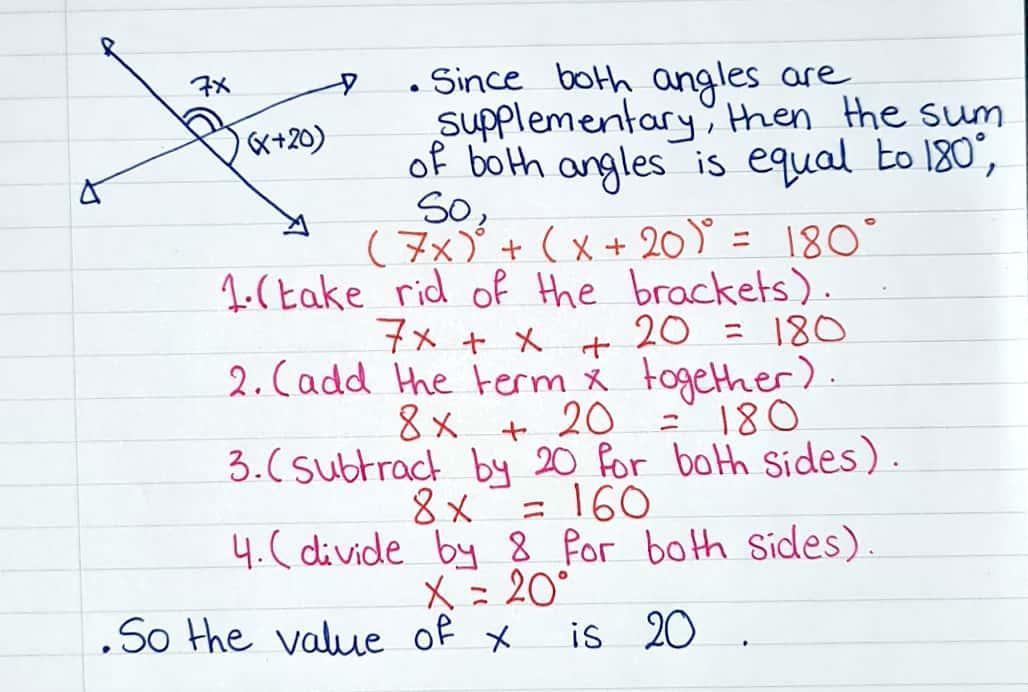 7x
(x+20)
. Since both angles are
supplementary, then the sum
of both angles is equal to 180°,
So,
(7x)° + (x + 20)° = 180°
1.(take rid of the brackets).
7x + x + 20 = 180
2.(add the term x together).
8x + 20 = 180
3.(subtract by 20 for both sides).
8x = 160
4.(divide by 8 for both sides).
x = 20°
. So the value of x is 20 .